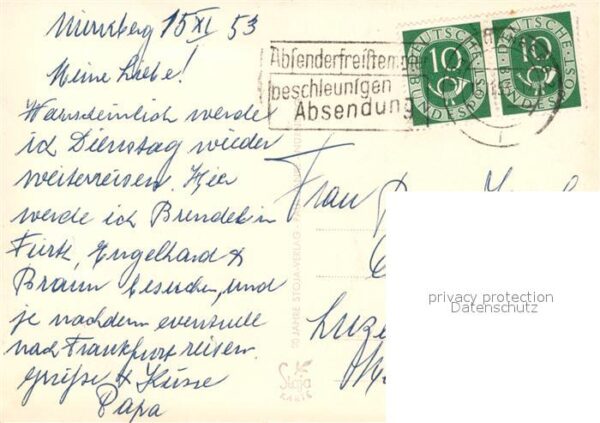 Nürnberg 15 XI 53
Meine Liebe!
Warscheinlich werde
ich Dienstag wieder
weiterreisen. Hier
werde ich Brendel in
Fürth, Engelhard &
Braun besuchen, und
je nachdem eventuell
nach Frankfurt reisen.
Grüße & Küsse
Papa
Absenderfreistempler
beschleunigen
Absendung
10
DEUTSCHE
BUNDESPOST
10
DEUTSCHE
BUNDESPOST
Frau
Luze
50 JAHRE STOJA-VERLAG
Stoja
KARTE
privacy protection
Datenschutz